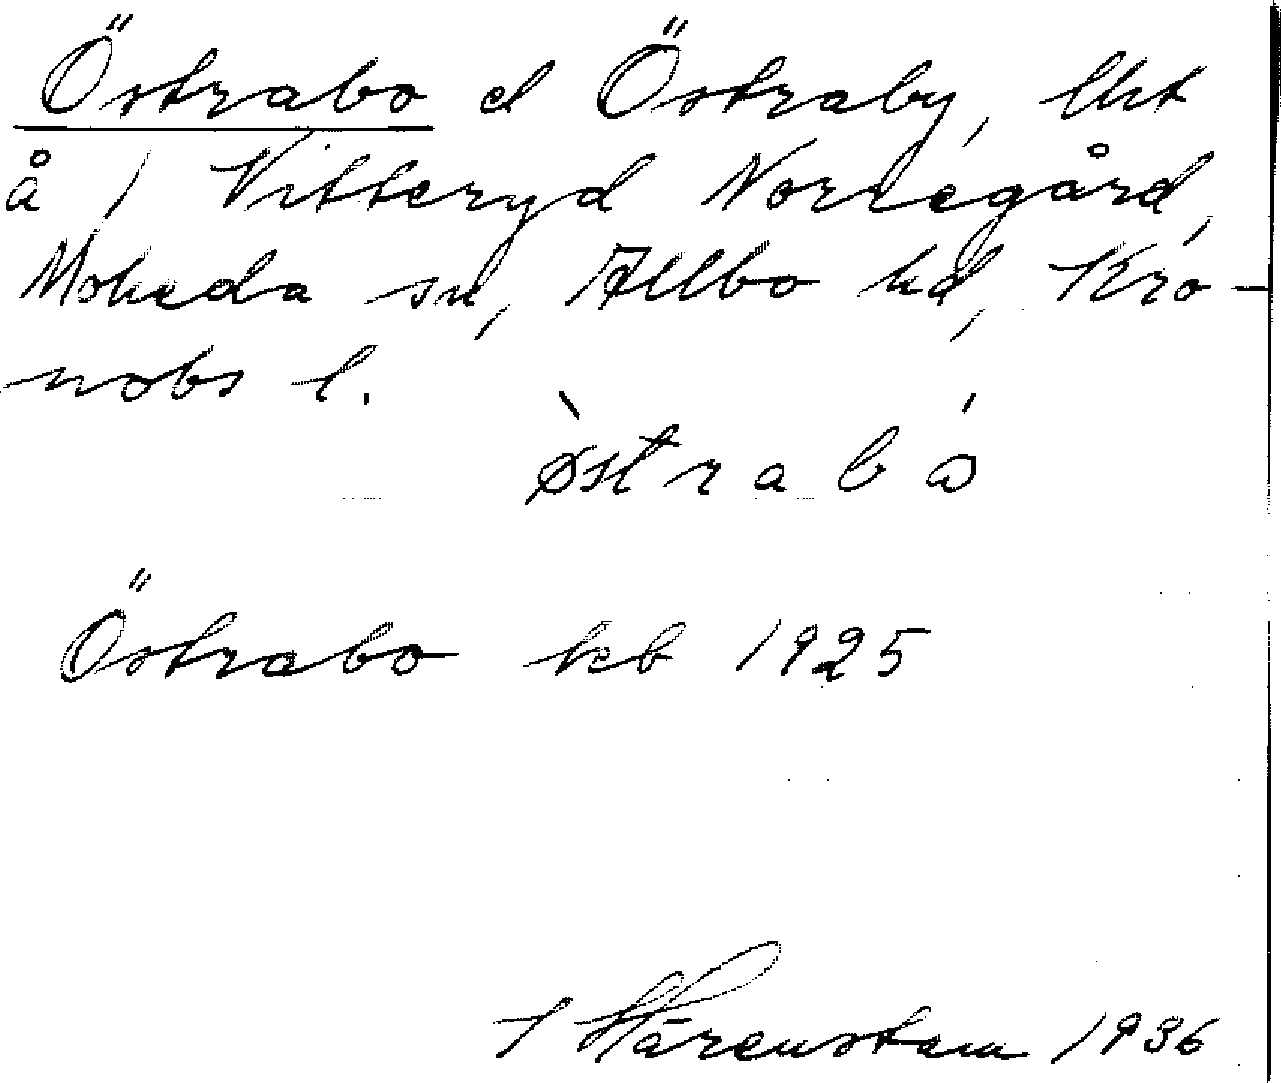 Östrabo el Östraby, lht
å 1 Vitteryd Norregård,
Moheda sn, Allbo hd, Kro-
nobs l.
Östrabo kb 1925
Härenstam 1936